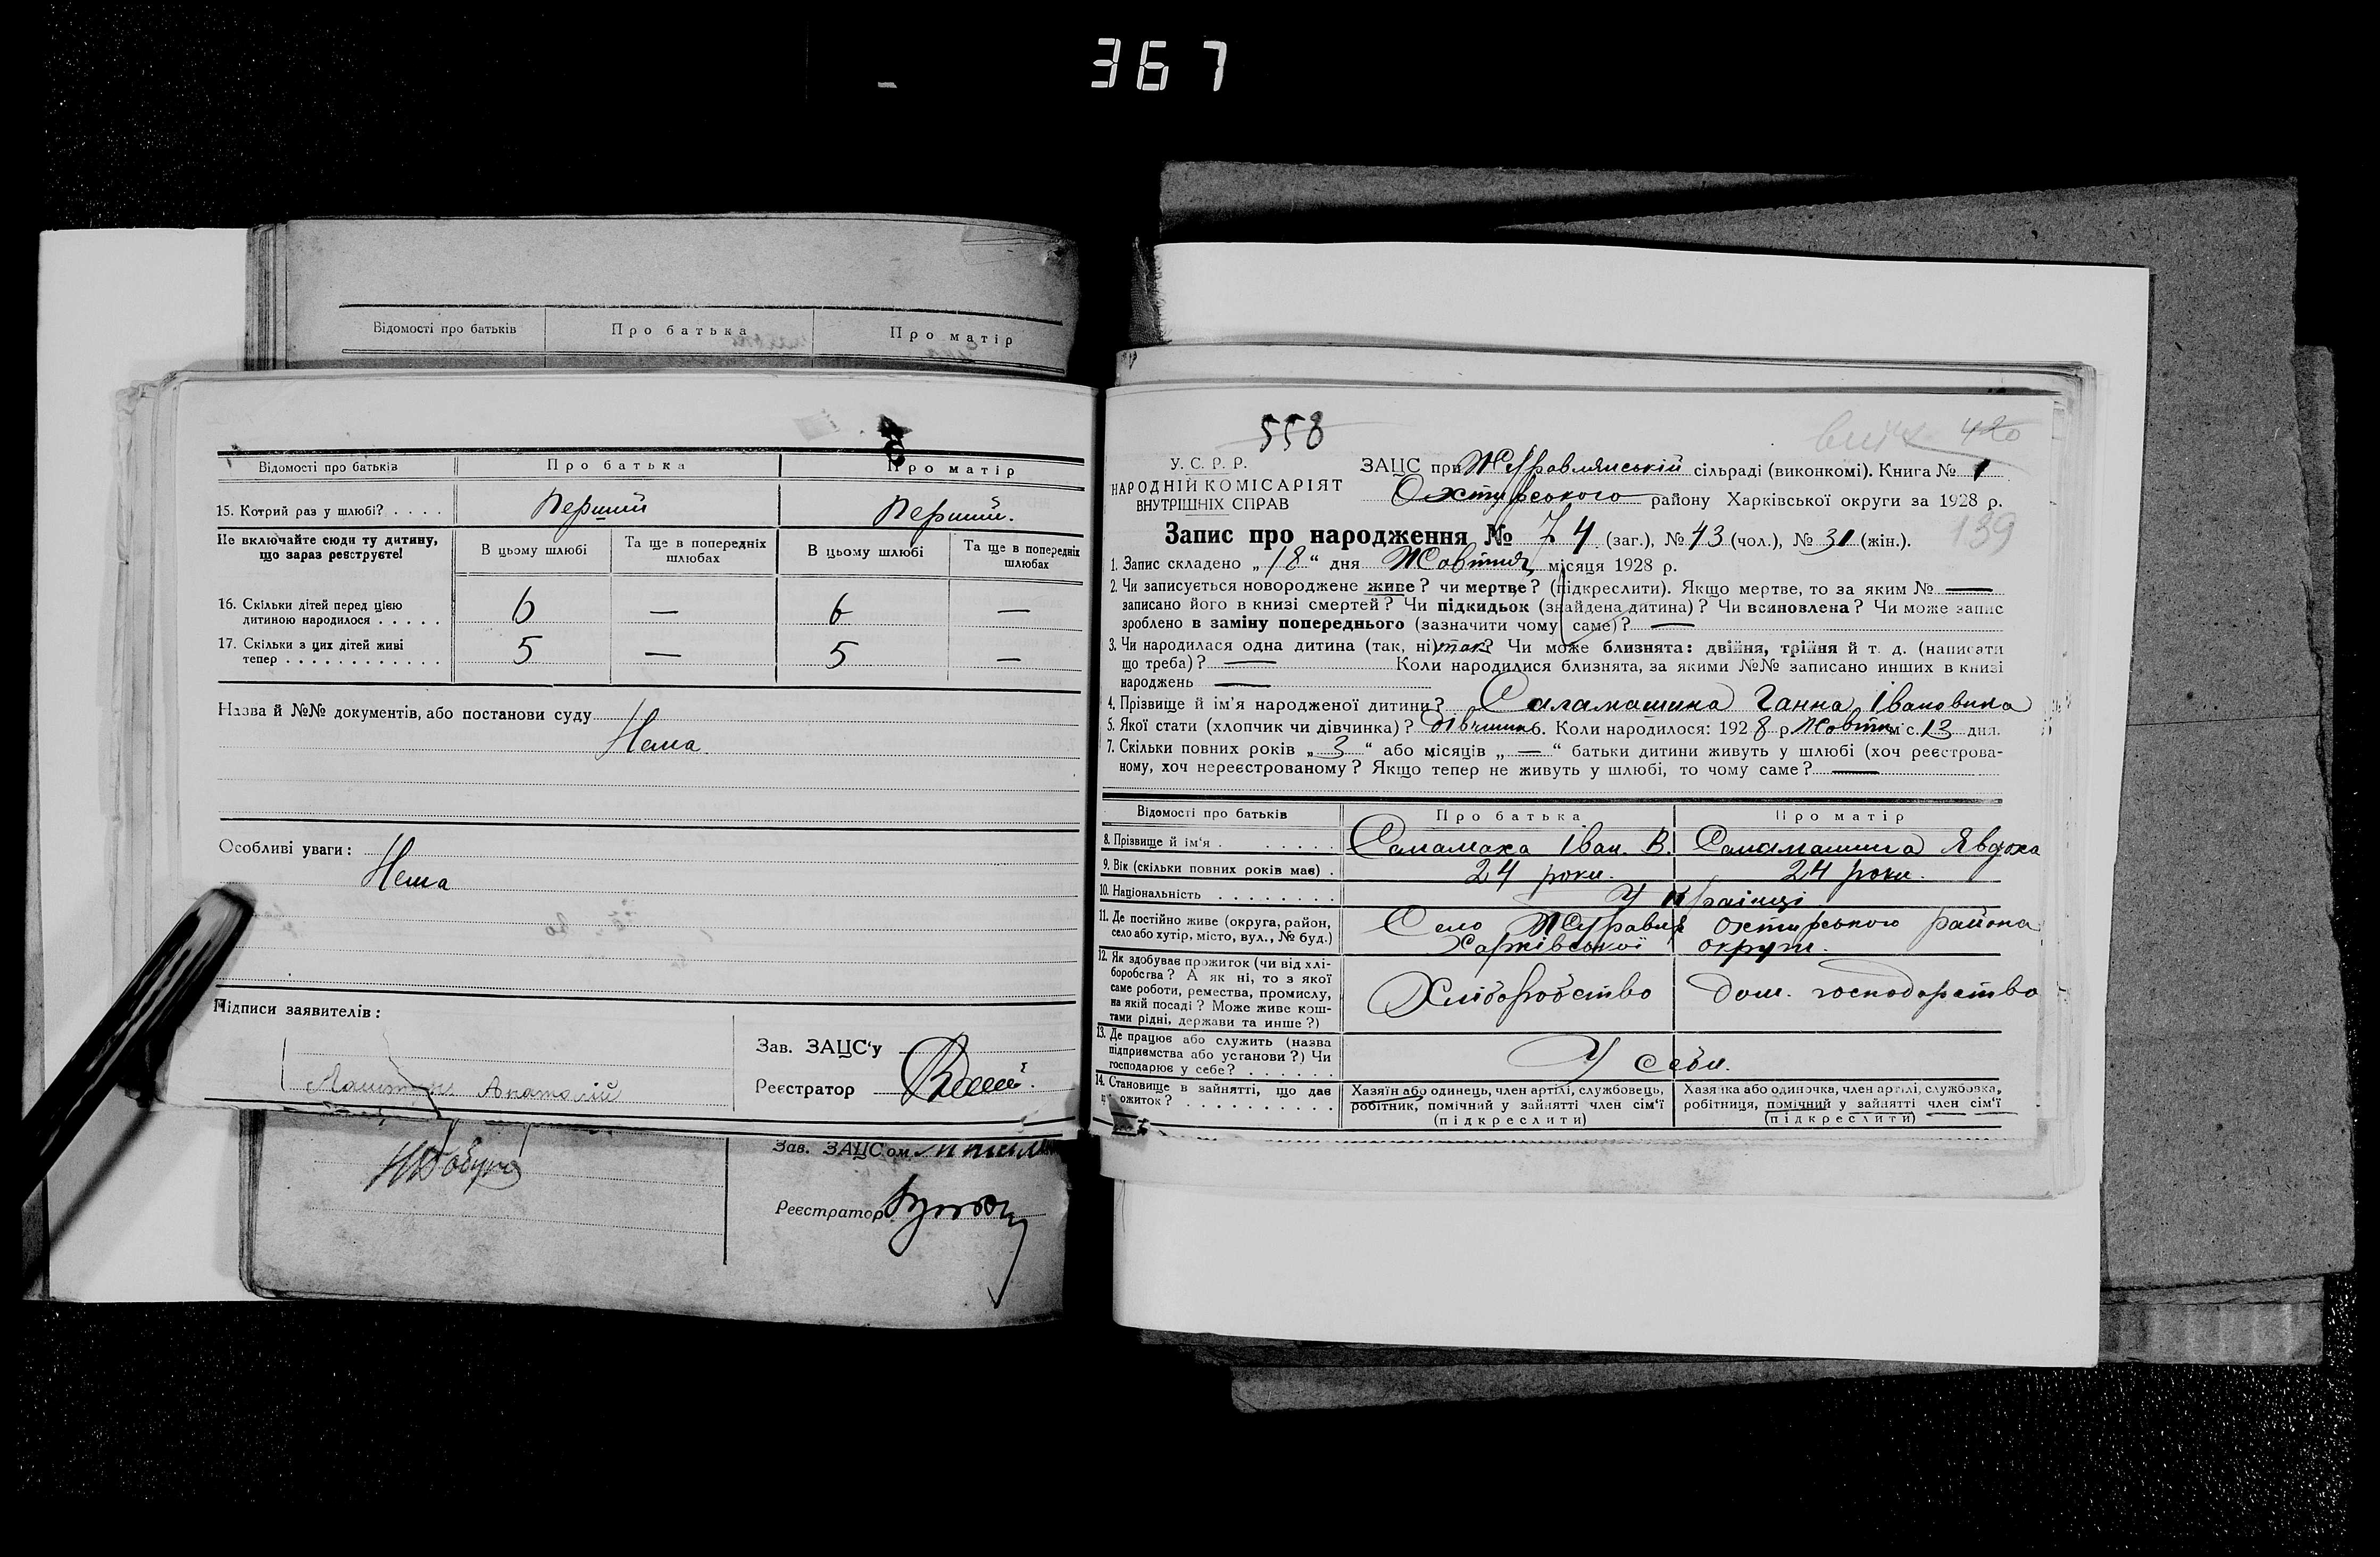 367
Відомості про батьків Про батька Про матір
Відомості про батьків Про батька Про матір
15. Котрий раз у шлюбі? . . . . Перший Перший.
Не включайте сюди ту дитину, що зараз реєструєте!
В цьому шлюбі Та ще в попередніх шлюбах В цьому шлюбі Та ще в попередніх шлюбах
16. Скільки дітей перед цією
дитиною народилося . . . . . 6 — 6 —
17. Скільки з цих дітей живі
тепер . . . . . . . . . . . . . 5 — 5 —
Назва й №№ документів, або постанови суду
Нема
Особливі уваги:
Нема
Підписи заявителів:
Анатолій
Зав. ЗАЦС‘у
Реєстратор
Зав. ЗАЦС‘ом
Реєстратор
558
420
У. С. Р. Р.
НАРОДНІЙ КОМІСАРІЯТ
ВНУТРІШНІХ СПРАВ
ЗАЦС при Журавлянській сільраді (виконкомі). Книга № 1
Охтирського району Харківської округи за 1928 р.
139
Запис про народження № 74 (заг.), № 43 (чол.), № 31 (жін.).
1. Запис складено „18“ дня Жовтня місяця 1928 р.
2. Чи записується новороджене живе? чи мертве? (підкреслити). Якщо мертве, то за яким № —
записано його в книзі смертей? Чи підкидьок (знайдена дитина)? Чи всиновлена? Чи може запис
зроблено в заміну попереднього (зазначити чому саме)? —
3. Чи народилася одна дитина (так, ні) так? Чи може близнята: двійня, трійня й т. д. (написати
що треба)? — Коли народилися близнята, за якими №№ записано инших в книзі
народжень —
4. Прізвище й ім’я народженої дитини? Саламашина Ганна Івановина
5. Якої стати (хлопчик чи дівчинка)? дівчинк 6. Коли народилося: 1928 р. Жовтн міс. 13 дня.
7. Скільки повних років „3“ або місяців „—“ батьки дитини живуть у шлюбі (хоч реєстрова-
ному, хоч нереєстрованому? Якщо тепер не живуть у шлюбі, то чому саме? —
Відомості про батьків Про батька Про матір
8. Прізвище й ім’я . . . . . . Саламаха Іван. В. Саламашина Явдоха
9. Вік (скільки повних років має) . 24 роки. 24 роки.
10. Національність . . . . . . . . Українці
11. Де постійно живе (округа, район,
село або хутір, місто, вул., № буд.)
Село Журавля Охтирського района
Харківської округи.
12. Як здобуває прожиток (чи від хлі-
боробства? А як ні, то з якої
саме роботи, ремества, промислу,
на якій посаді? Може живе кош-
тами рідні, держави та инше?)
Хліборобство Дом. господарство
13. Де працює або служить (назва
підприємства або установи?) Чи
господарює у себе? . . . . . . У себи.
14. Становище в зайнятті, що дає
ожиток? . . . . . . . . . . .
Хазяїн або одинець, член артілі, службовець,
робітник, помічний у зайнятті член сім’ї
(підкреслити)
Хазяйка або одиночка, член артілі, службовка,
робітниця, помічний у зайнятті член сім’ї
(підкреслити)